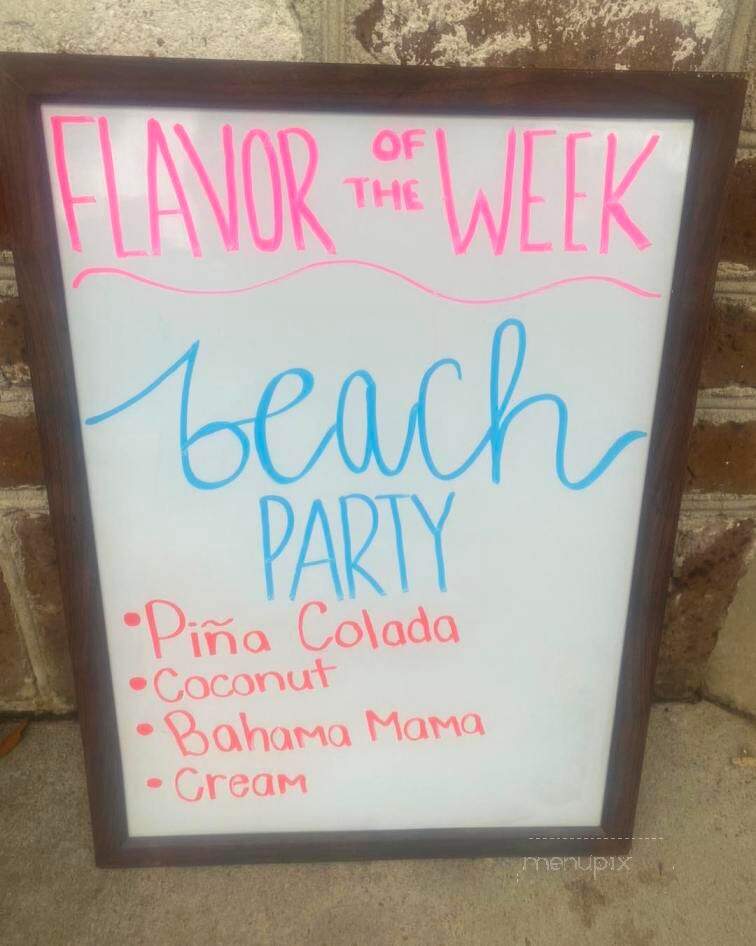 FLAVOR OF THE WEEK
beach
PARTY
• Piña Colada
• Coconut
• Bahama Mama
• Cream
menupix